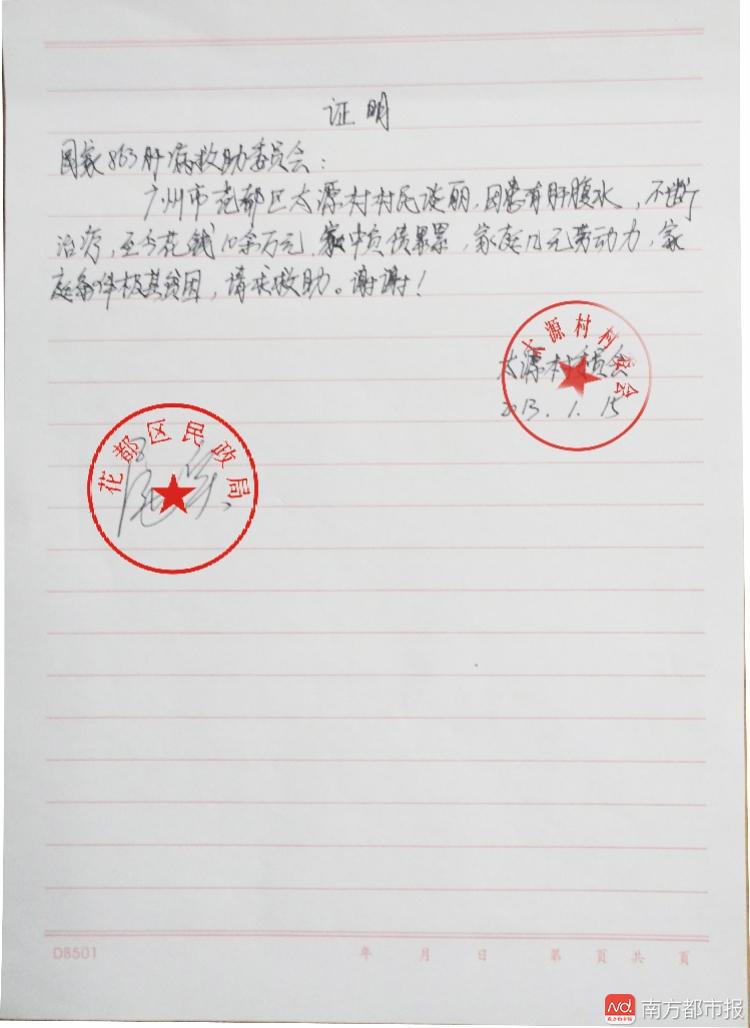 证明
国家863肝病救助委员会：
广州市花都区太源村村民谈丽，因患有肝腹水，不断
治疗，至今花钱10余万元，家中负债累累，家庭几无劳动力，家
庭条件极其贫困，请求救助。谢谢！
太源村村委会
太源村委员会
2013.1.15
花都区民政局
D8501 年 月 日 第 页 共 页
南方都市报